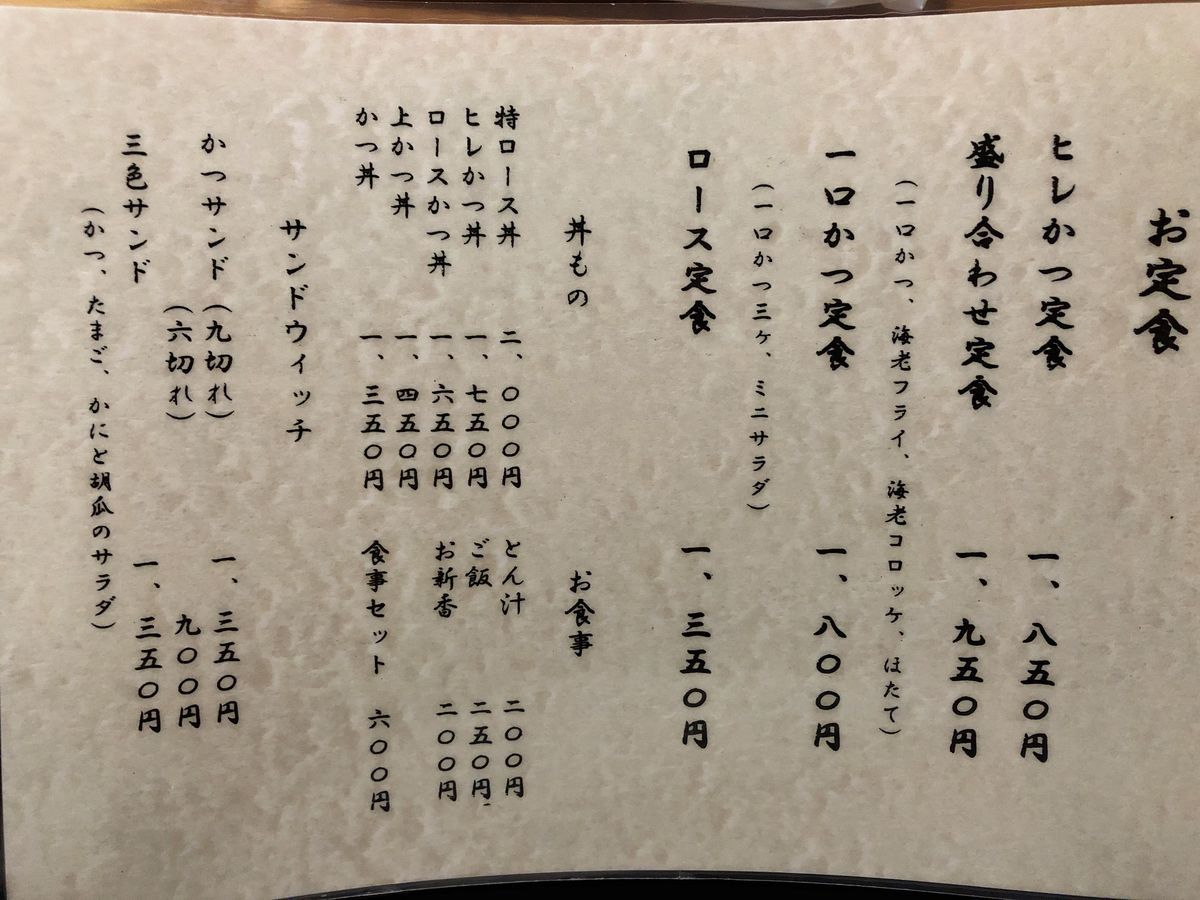 お定食
ヒレかつ定食 一、八五〇円
盛り合わせ定食 一、九五〇円
（一口かつ、海老フライ、海老コロッケ、ほたて）
一口かつ定食 一、八〇〇円
（一口かつ三ヶ、ミニサラダ）
ロース定食 一、三五〇円
丼もの
特ロース丼 二、〇〇〇円
ヒレかつ丼 一、七五〇円
ロースかつ丼 一、六五〇円
上かつ丼 一、四五〇円
かつ丼 一、三五〇円
お食事
とん汁 二〇〇円
ご飯 二五〇円
お新香 二〇〇円
食事セット 六〇〇円
サンドウィッチ
かつサンド（九切れ） 一、三五〇円
（六切れ） 九〇〇円
三色サンド 一、三五〇円
（かつ、たまご、かにと胡瓜のサラダ）